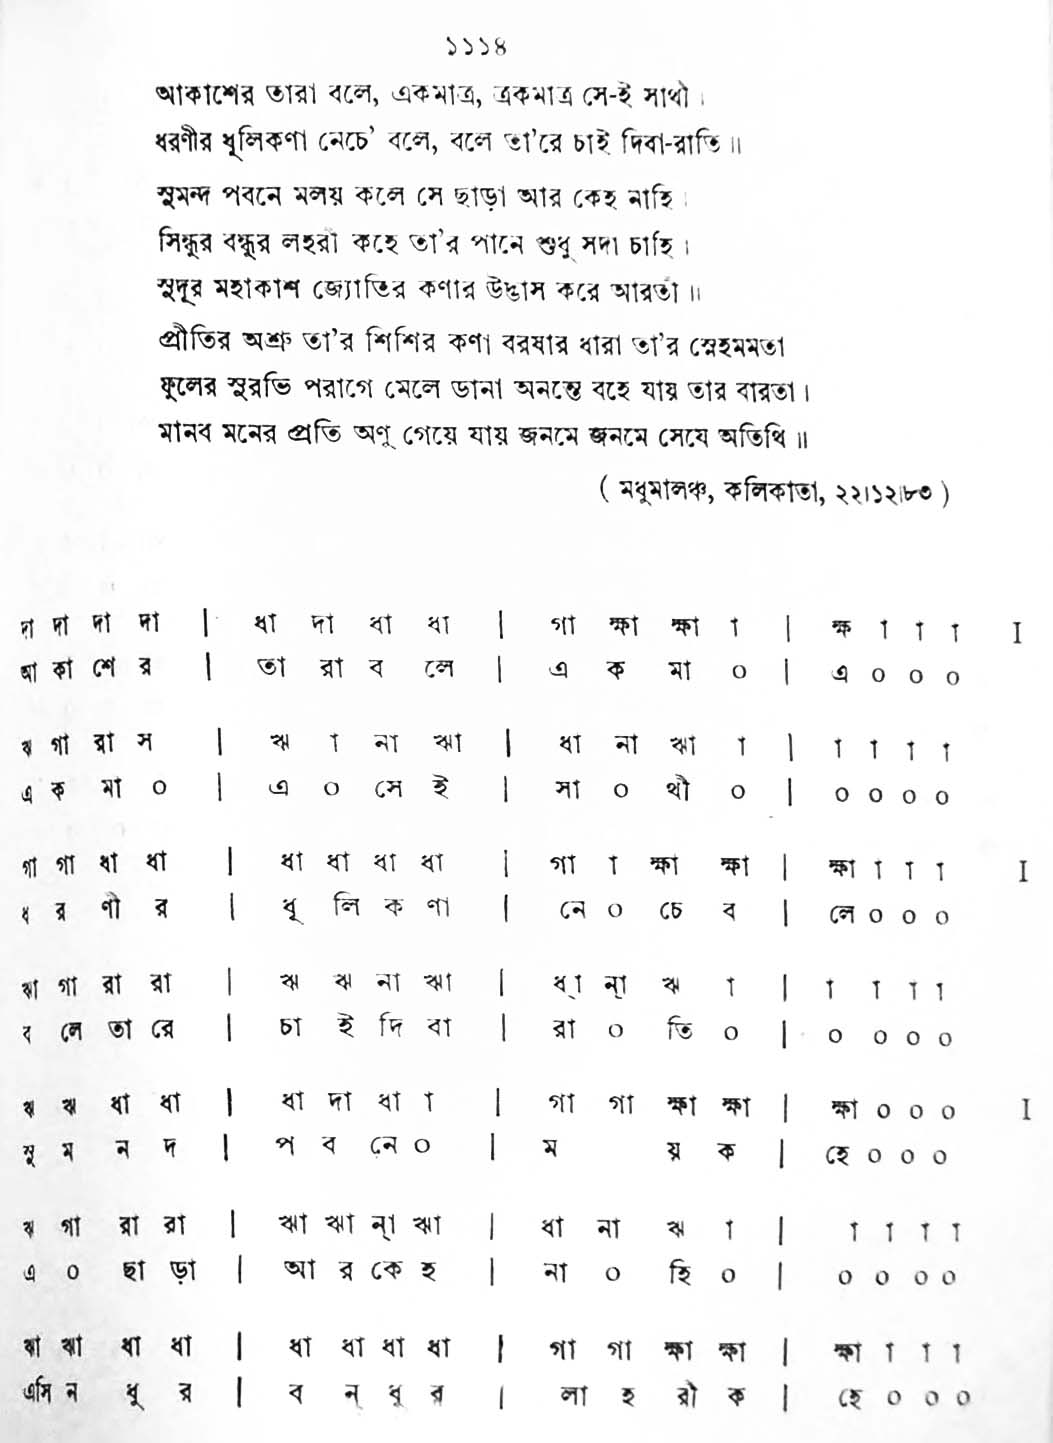 ১১১৪
আকাশের তারা বলে, একমাত্র, ত্রকমাত্র সে-ই সাথী।
ধরণীর ধূলিকণা নেচে’ বলে, বলে তা’রে চাই দিবা-রাতি॥
সুমন্দ পবনে মলয় কলে সে ছাড়া আর কেহ নাহি।
সিন্ধুর বন্ধুর লহরী কহে তা’র পানে শুধু সদা চাহি।
সুদূর মহাকাশ জ্যোতির কণার উদ্ভাস করে আরতী॥
প্রীতির অশ্রু তা’র শিশির কণা বরষার ধারা তা’র স্নেহমমতা
ফুলের সুরভি পরাগে মেলে ডানা অনন্তে বহে যায় তার বারতা।
মানব মনের প্রতি অণু গেয়ে যায় জনমে জনমে সেযে অতিথি॥
( মধুমালঞ্চ, কলিকাতা, ২২।১২।৮৩ )
দা দা দা দা | ধা দা ধা ধা | গা ক্ষা ক্ষা া | ক্ষ া া া I
আ কা শে র | তা রা ব লে | এ ক মা ০ | এ ০ ০ ০
ঋ গা রা স | ঋ া না ঋা | ধা না ঋা া | া া া া
এ ক মা ০ | এ ০ সে ই | সা ০ থী ০ | ০ ০ ০ ০
গা গা ধা ধা | ধা ধা ধা ধা | গা া ক্ষা ক্ষা | ক্ষা া া া I
ধ র ণী র | ধূ লি ক ণা | নে ০ চে ব | লে ০ ০ ০
ঋা গা রা রা | ঋ ঋ না ঋা | ধ্া ন্া ঋ া | া া া া
ব লে তা রে | চা ই দি বা | রা ০ তি ০ | ০ ০ ০ ০
ঋ ঋ ধা ধা | ধা দা ধা া | গা গা ক্ষা ক্ষা | ক্ষা ০ ০ ০ I
সু ম ন দ | প ব নে ০ | ম য় ক | হে ০ ০ ০
ঋ গা রা রা | ঋা ঋা ন্া ঋা | ধা না ঋ া | া া া া
এ ০ ছা ড়া | আ র কে হ | না ০ হি ০ | ০ ০ ০ ০
ঋা ঋা ধা ধা | ধা ধা ধা ধা | গা গা ক্ষা ক্ষা | ক্ষা া া া
এসি ন ধু র | ব ন্ ধু র | লা হ রী ক | হে ০ ০ ০